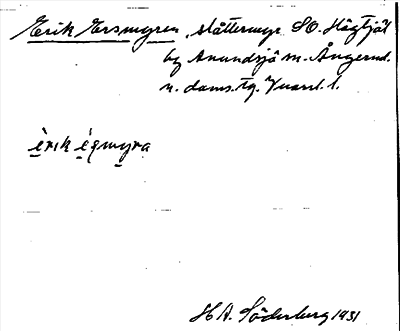 Erik Ersmyren, slåttermyr SO. Högtjäl
by Anundsjö sn. Ångerml.
n. doms. tg.
èrik éqmyra
H A. Söderberg 1931